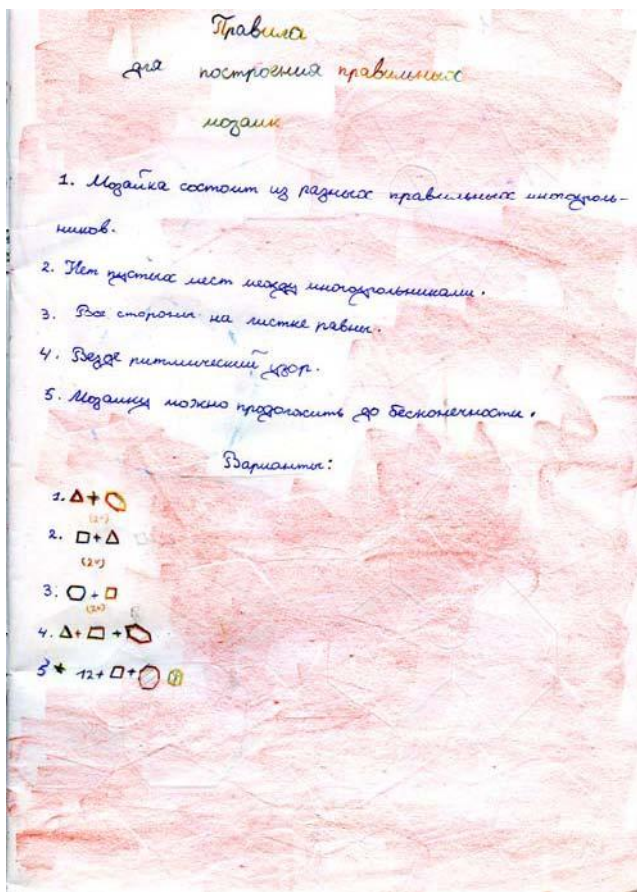 Правила
для построения правильных
мозаик
1. Мозаика состоит из разных правильных многоуголь-
ников.
2. Нет пустых мест между многоугольниками.
3. Все стороны на листке равны.
4. Везде ритмический узор.
5. Мозаику можно продолжить до бесконечности.
Варианты:
1. +
2. +
3. +
4. + +
5 12 + +